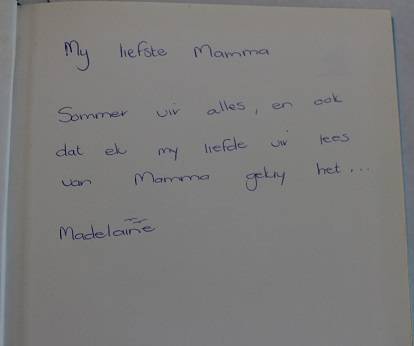 My liefste Mamma
Sommer vir alles, en ook
dat ek my liefde vir lees
van Mamma gekry het...
Madelaine